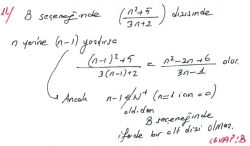 B seçeneğinde (n²+5 / 3n+2) dizisinde
n yerine (n-1) yazılırsa
(n-1)²+5 / 3(n-1)+2 = n²-2n+6 / 3n-1 olur.
Ancak n-1 ∉ N⁺ (n=1 için = 0)
olduğundan
B seçeneğinde
ifade bir alt dizi olmaz.
CEVAP: B